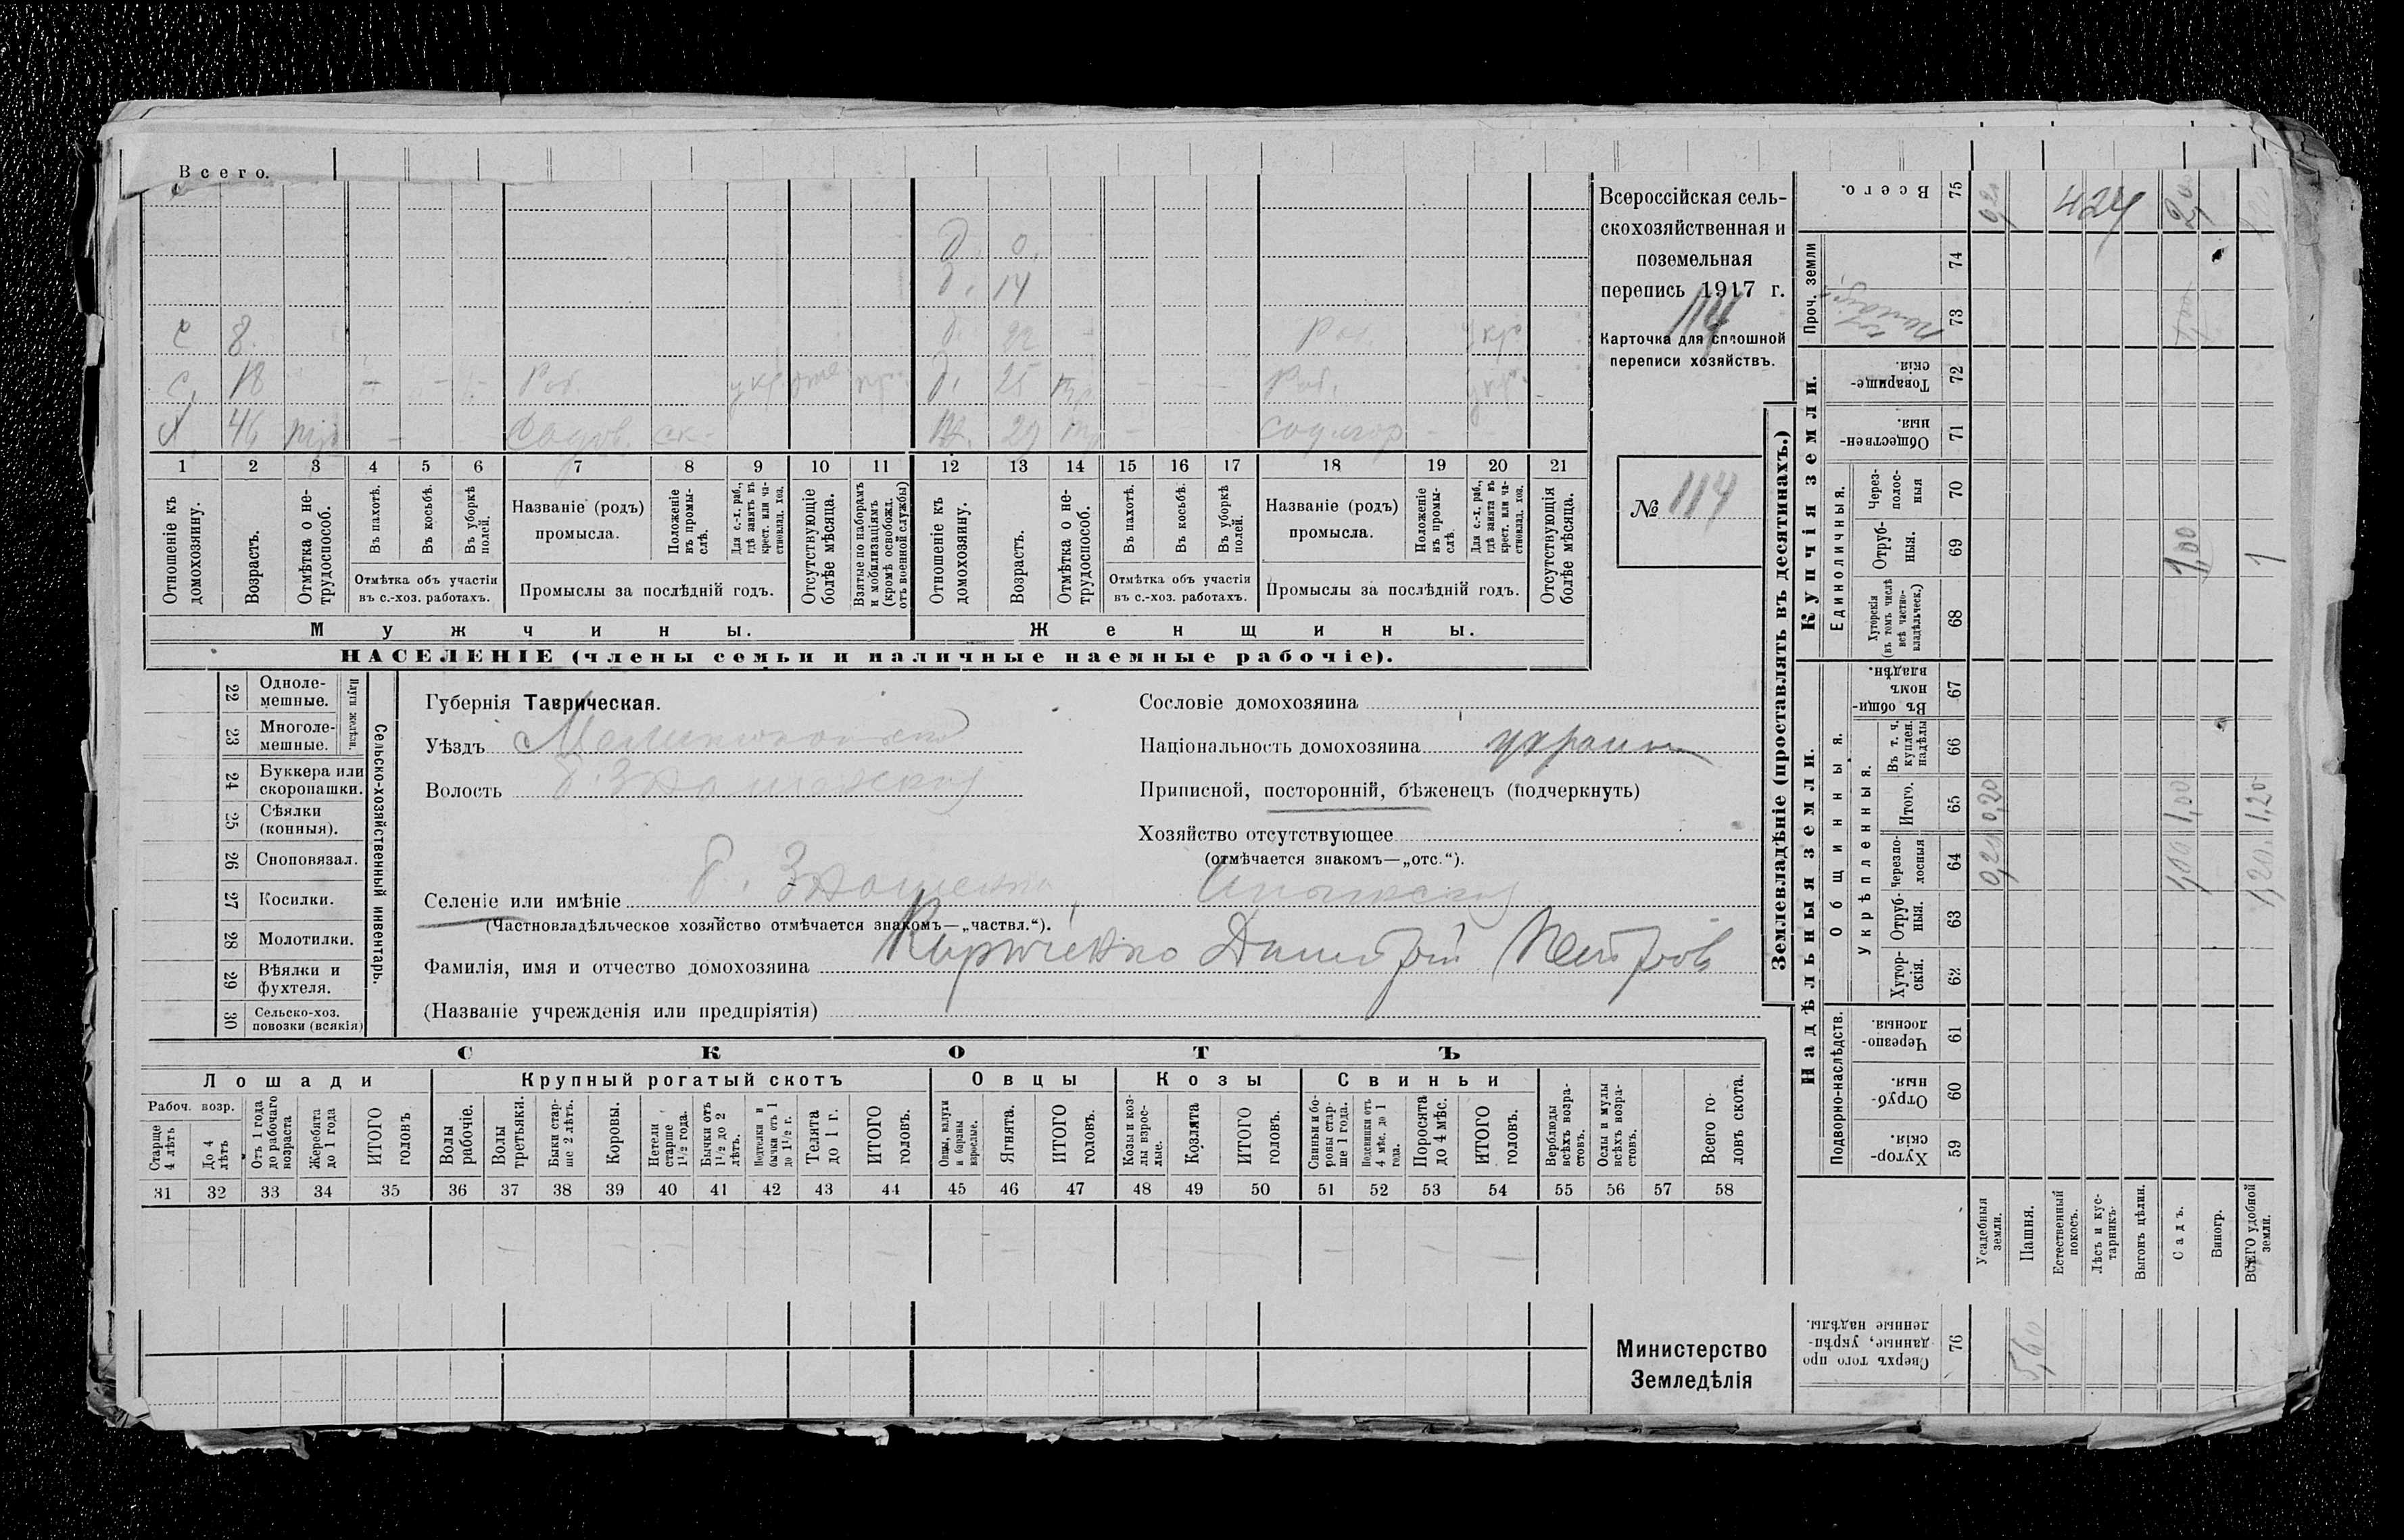 Всего.
Д. 0.
Д. 14
С 8. Д. 22 Раб. укр
С. 18 Раб. укр Д. 25 Раб. укр.
Х 46 Садов. Ж. 29
1 2 3 4 5 6 7 8 9 10 11 12 13 14 15 16 17 18 19 20 21
Отношеніе къ домохозяину.
Возрастъ.
Отмѣтка о не-трудоспособ.
Въ пахотѣ.
Въ косьбѣ.
Въ уборкѣ полей.
Отмѣтка объ участіи
въ с.-хоз. работахъ.
Названіе (родъ)
промысла.
Положеніе въ промы-слѣ.
Для с.-х. раб., гдѣ занятъ въ крест. или ча-стновлад. хоз.
Промыслы за послѣдній годъ.
Отсутствующіе болѣе мѣсяца.
Взятые по наборамъ и мобилизаціямъ (кромѣ освобожд. отъ военной службы)
Отношеніе къ домохозяину.
Возрастъ.
Отмѣтка о не-трудоспособ.
Въ пахотѣ.
Въ косьбѣ.
Въ уборкѣ полей.
Отмѣтка объ участіи
въ с.-хоз. работахъ.
Названіе (родъ)
промысла.
Положеніе въ промы-слѣ.
Для с.-х. раб., гдѣ занята въ крест. или ча-стновлад. хоз.
Промыслы за послѣдній годъ.
Отсутствующія болѣе мѣсяца.
Мужчины.
Женщины.
НАСЕЛЕНІЕ (члены семьи и наличные наемные рабочіе).
Всероссійская сель-
скохозяйственная и
поземельная
перепись 1917 г.
114
Карточка для сплошной
переписи хозяйствъ.
№ 114
Плуги желѣзн.
22 Одноле-
мешные.
23 Многоле-
мешные.
24 Буккера или
скоропашки.
25 Сѣялки
(конныя).
26 Сноповязал.
27 Косилки.
28 Молотилки.
29 Вѣялки и
фухтеля.
30 Сельско-хоз.
повозки (всякія)
Сельско-хозяйственный инвентарь.
Губернія Таврическая.
Уѣздъ Мелитопольскій
Волость
Селеніе или имѣніе
(Частновладѣльческое хозяйство отмѣчается знакомъ—„частвл.“).
Фамилія, имя и отчество домохозяина Кириченко Димитрій Петров
(Названіе учрежденія или предпріятія)
Сословіе домохозяина
Національность домохозяина украин
Приписной, посторонній, бѣженецъ (подчеркнуть)
Хозяйство отсутствующее
(отмѣчается знакомъ—„отс.“).
СКОТЪ
Лошади
Крупный рогатый скотъ
Овцы
Козы
Свиньи
Рабоч. возр.
Старше 4 лѣтъ
До 4 лѣтъ
Отъ 1 года до рабочаго возраста
Жеребята до 1 года
ИТОГО головъ
Волы рабочіе.
Волы третьяки.
Быки стар-ше 2 лѣтъ.
Коровы.
Нетели старше 1½ года.
Бычки отъ 1½ до 2 лѣтъ.
Подтелки и бычки отъ 1 до 1½ г.
Телята до 1 г.
ИТОГО головъ.
Овцы, валухи и бараны взрослые.
Ягнята.
ИТОГО головъ.
Козы и коз-лы взрос-лые.
Козлята
ИТОГО головъ.
Свиньи и бо-ровы стар-ше 1 года.
Подсвинки отъ 4 мѣс. до 1 года.
Поросята до 4 мѣс.
ИТОГО головъ.
Верблюды всѣхъ возра-стовъ.
Ослы и мулы всѣхъ возра-стовъ.
Всего го-ловъ скота.
31 32 33 34 35 36 37 38 39 40 41 42 43 44 45 46 47 48 49 50 51 52 53 54 55 56 57 58
Министерство
Земледѣлія
Землевладѣніе (проставлять въ десятинахъ.)
Надѣльныя земли.
Купчія земли.
Проч. земли
Всего.
75
74
73
Товарище-скія.
72
Обществен-ныя.
71
Единоличныя.
Через-полос-ныя
70
Отруб-ныя.
69
Хуторскія (въ томъ числѣ всѣ частно-владѣльческ.)
68
Общинныя.
Въ общи-номъ владѣн.
67
Укрѣпленныя.
Въ т. ч. куплен. надѣлы
66
Итого.
65
Черезпо-лосныя
64
Отруб-ныя.
63
Хутор-скія.
62
Подворно-наслѣдств.
Черезпо-лосныя.
61
Отруб-ныя.
60
Хутор-скія.
59
Усадебныя земли.
Пашня.
Естественный покосъ.
Лѣсъ и кус-тарникъ.
Выгонъ цѣлин.
Садъ.
Виногр.
ВСЕГО удобной земли.
424
1,00
1
0,20
1,00
1,20
0,20
1,00
1,20
Сверхъ того про-данные, укрѣп-ленные надѣлы.
76
5,60